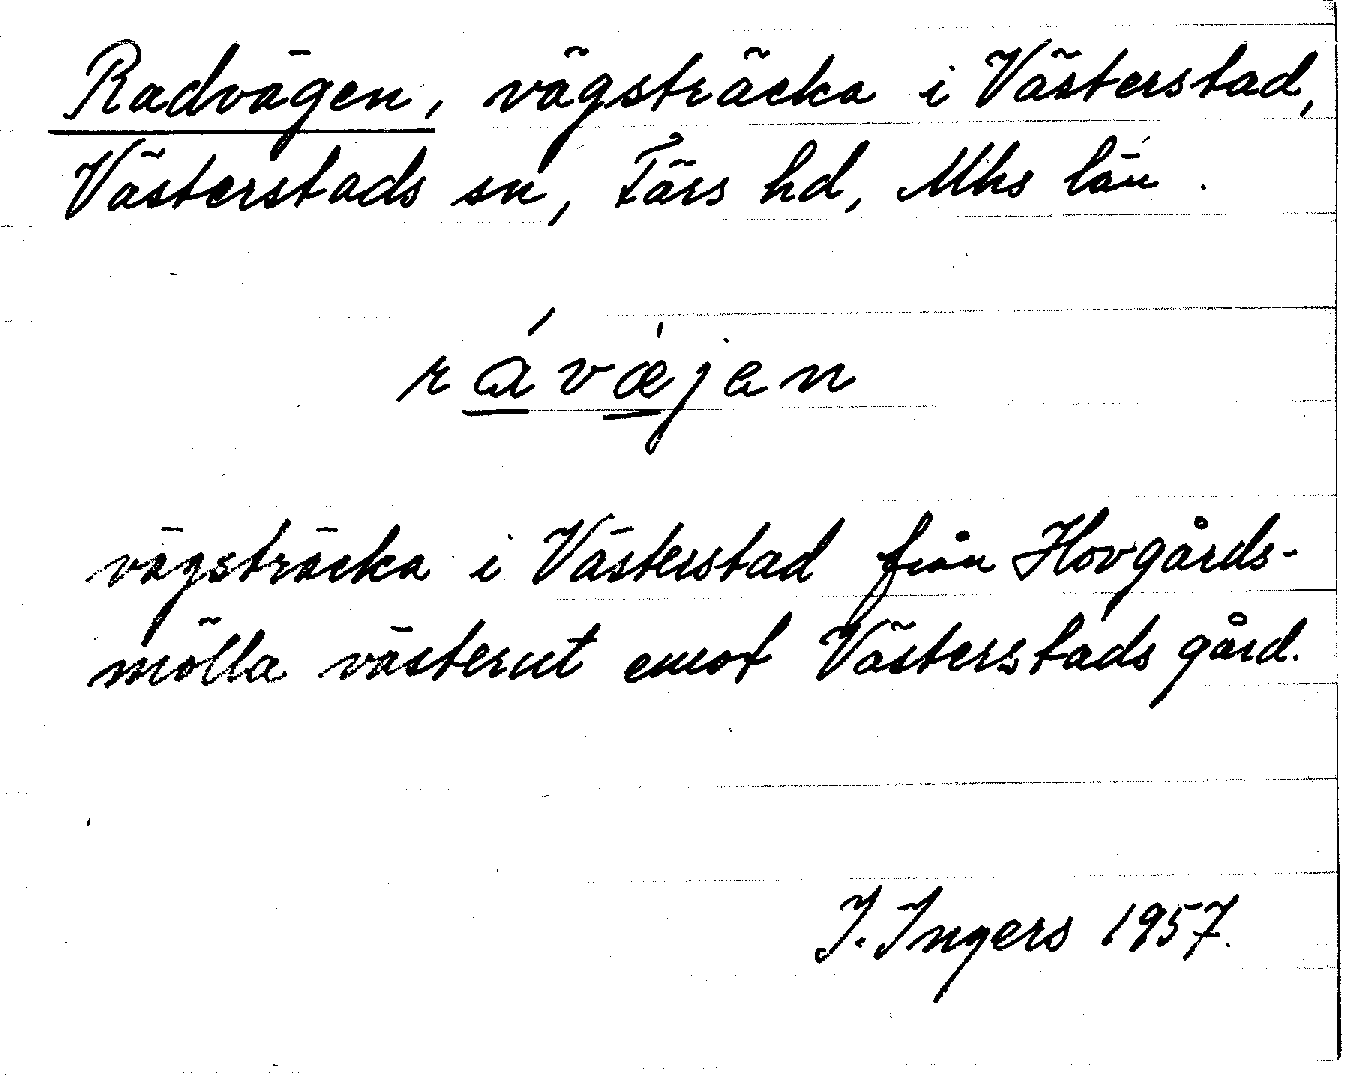 Radvägen, vägsträcka i Västerstad,
Västerstads sn, Färs hd, Mhs län.
rávæjen
vägsträcka i Västerstad från Hovgårds-
mölla västerut emot Västerstads gård.
I. Ingers 1957.